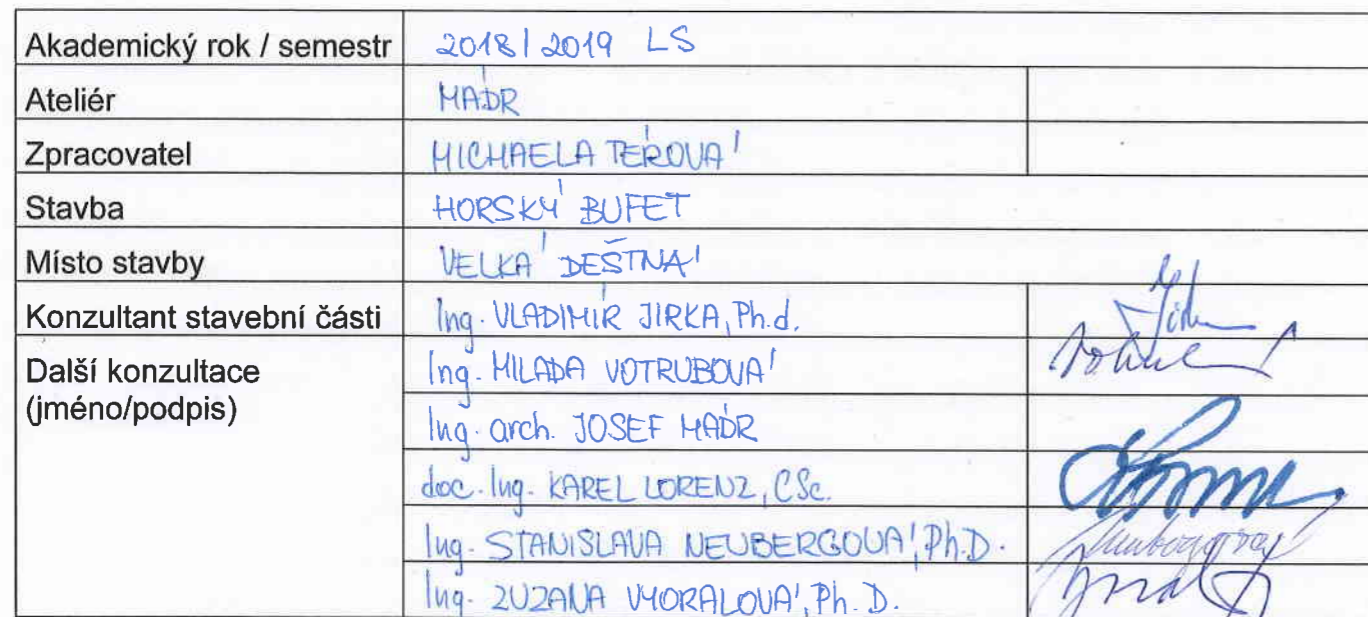 Akademický rok / semestr 2018/2019 LS
Ateliér MÁDR
Zpracovatel MICHAELA TEROVÁ
Stavba HORSKÝ BUFET
Místo stavby VELKÁ DEŠTNÁ
Konzultant stavební části Ing. VLADIMÍR JIRKA, Ph.d.
Další konzultace Ing. MILADA VOTRUBOVÁ
(jméno/podpis)
Ing. arch. JOSEF MÁDR
doc. Ing. KAREL LORENZ, CSc.
Ing. STANISLAVA NEUBERGOVÁ, Ph.D.
Ing. ZUZANA VYORALOVÁ, Ph.D.